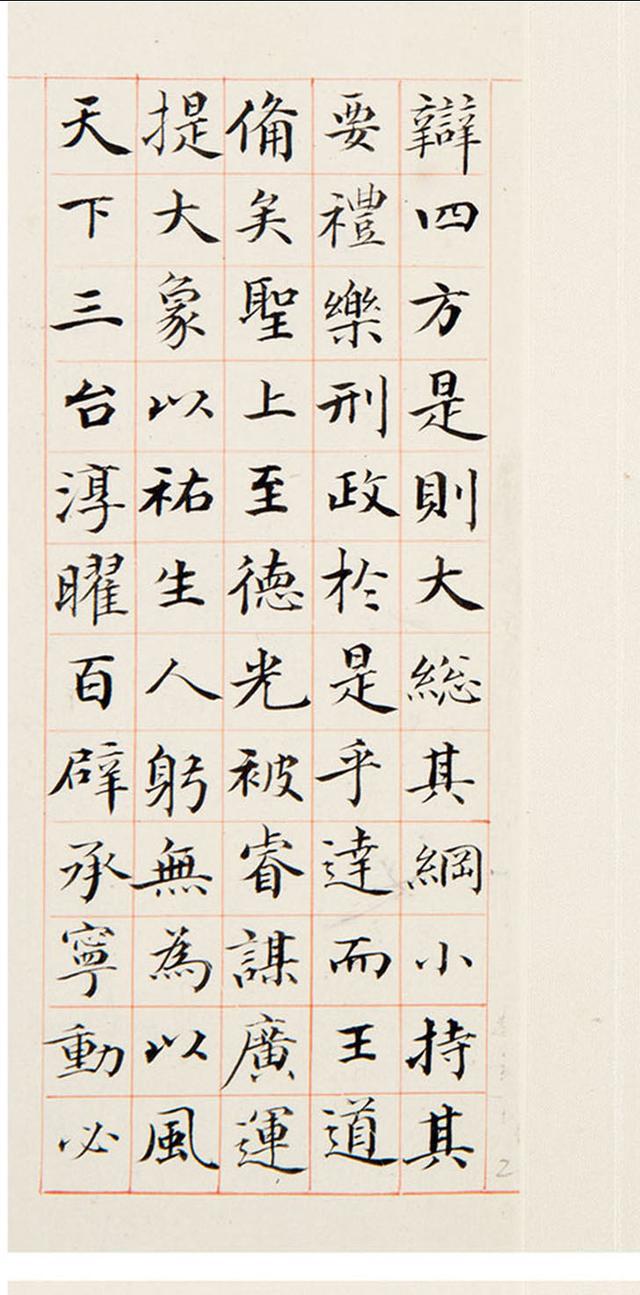 辯四方是則大総其綱小持其
要禮樂刑政於是乎達而王道
俻矣聖上至德光被睿謀廣運
提大象以祐生人躬無為以風
天下三台淳曜百辟承寧動必
2